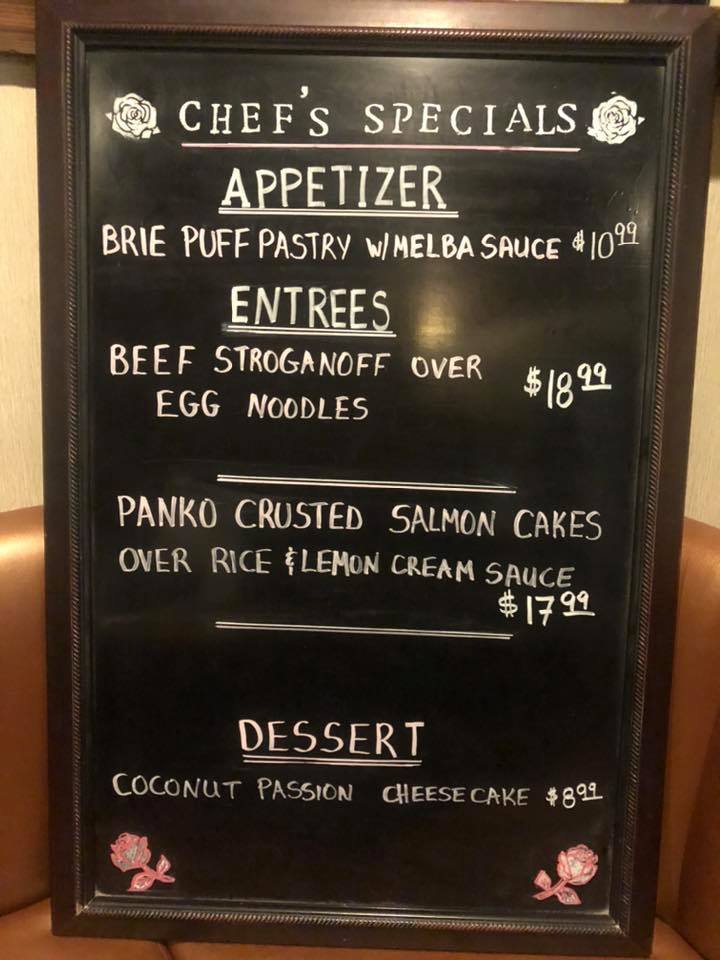 CHEF'S SPECIALS
APPETIZER
BRIE PUFF PASTRY W/MELBA SAUCE $10.99
ENTREES
BEEF STROGANOFF OVER $18.99
EGG NOODLES
PANKO CRUSTED SALMON CAKES
OVER RICE & LEMON CREAM SAUCE
$17.99
DESSERT
COCONUT PASSION CHEESECAKE $8.99